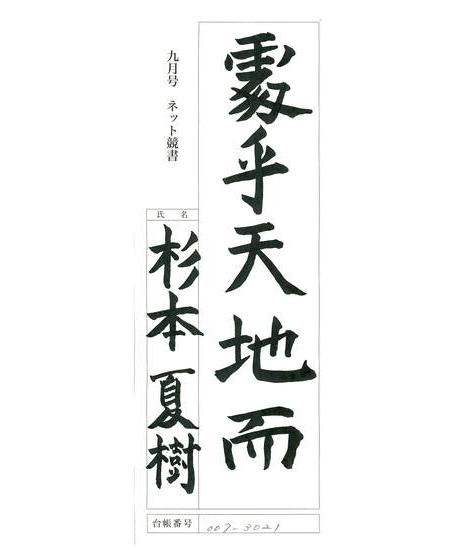 處乎天地而
氏名
杉本夏樹
九月号 ネット競書
台帳番号 007-3021